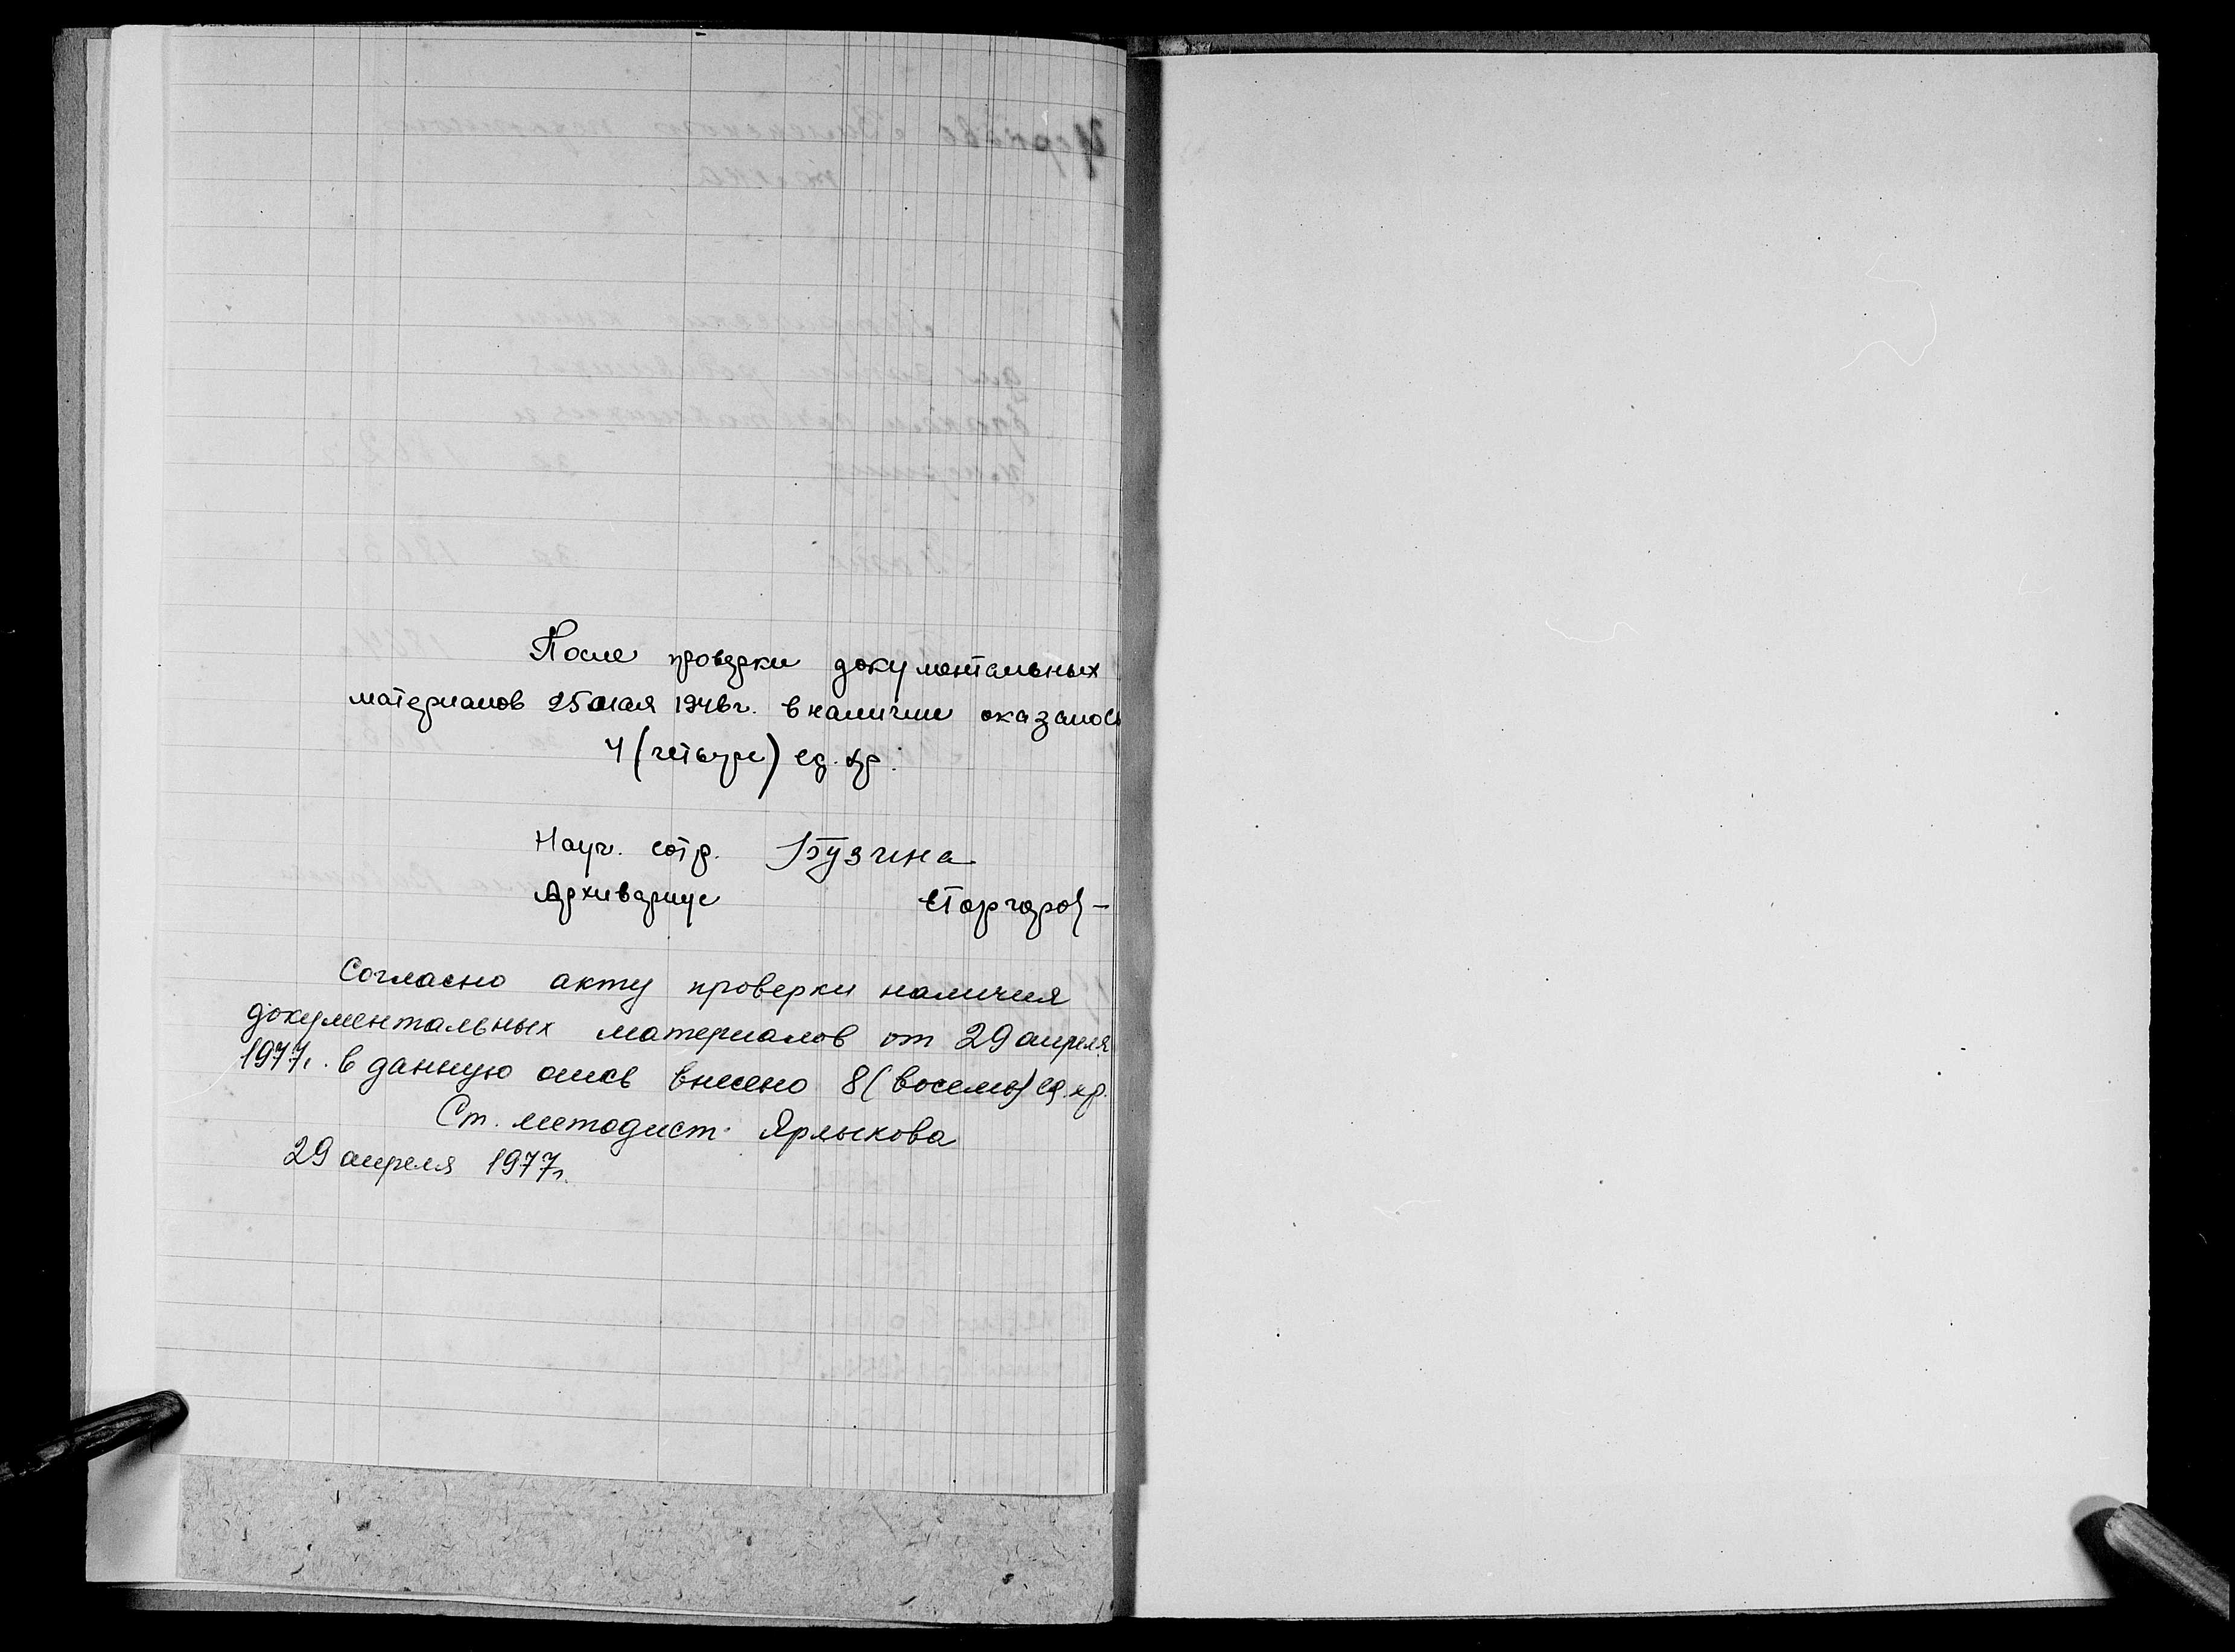 После проверки документальных
материалов 25 мая 1946г. в наличии оказалось
4 (четыре) ед. хр.
Науч. сотр. Бузина
Архивариус
Согласно акту проверки наличия
документальных материалов от 29 апреля
1977г. в данную опись внесено 8 (восемь) ед. хр.
Ст. методист Ярлыкова
29 апреля 1977г.